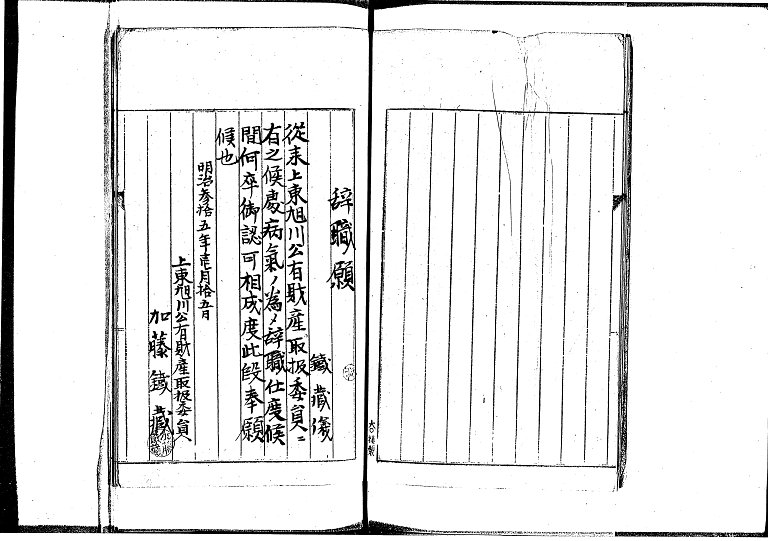 辞職願
鐵蔵儀
従来上東旭川公有財産取扱委員ニ
有之候處病氣ノ為メ辞職仕度候
間何卒御認可相成度此段奉願
候也
明治参拾五年壱月拾五日
上東旭川公有財産取扱委員
加藤鐵蔵